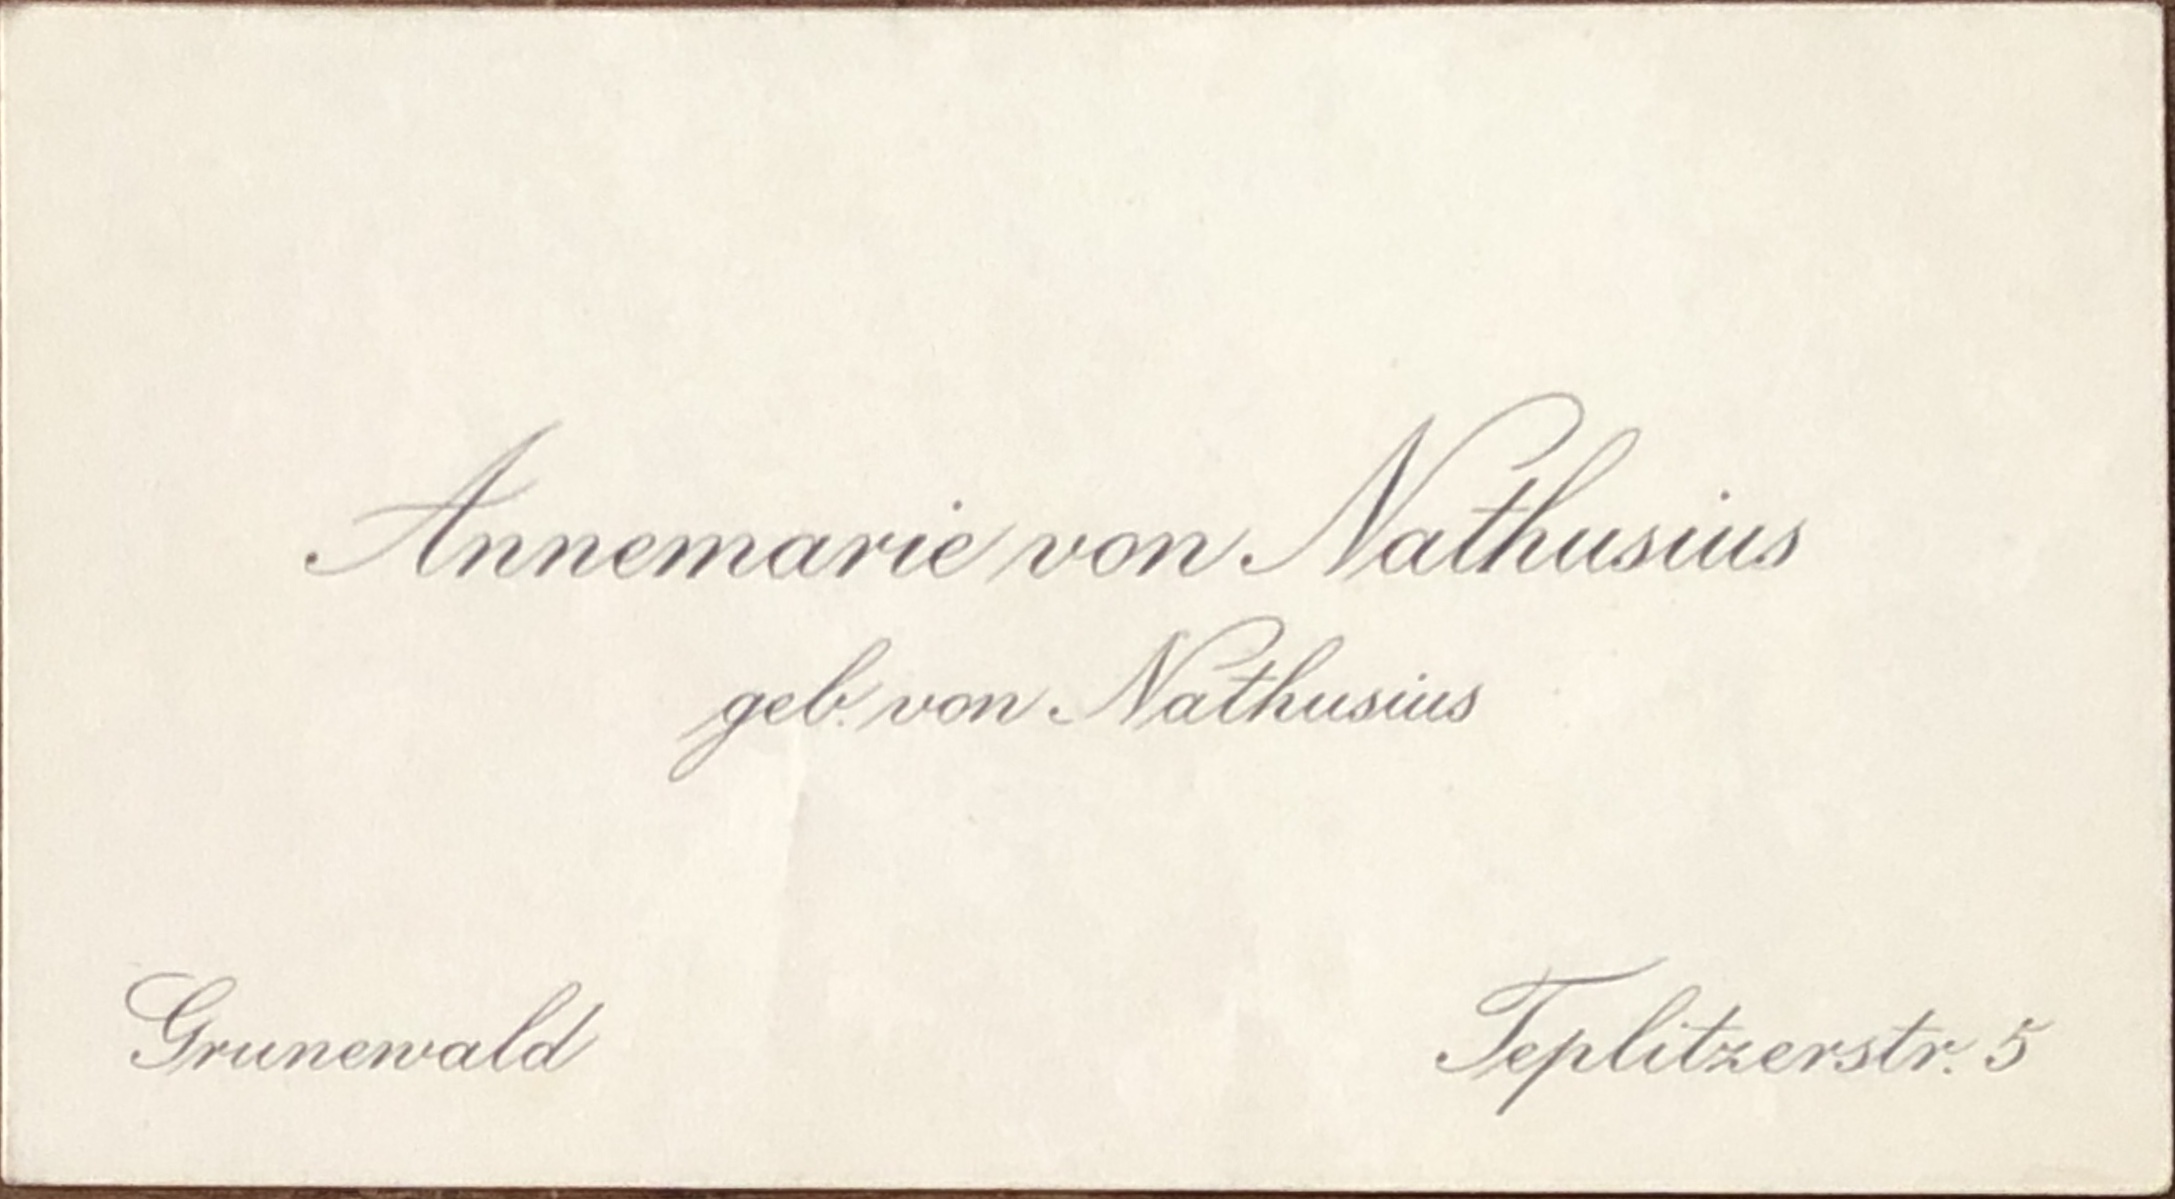 Annemarie von Nathusius
geb. von Nathusius
Grunewald
Teplitzerstr. 5